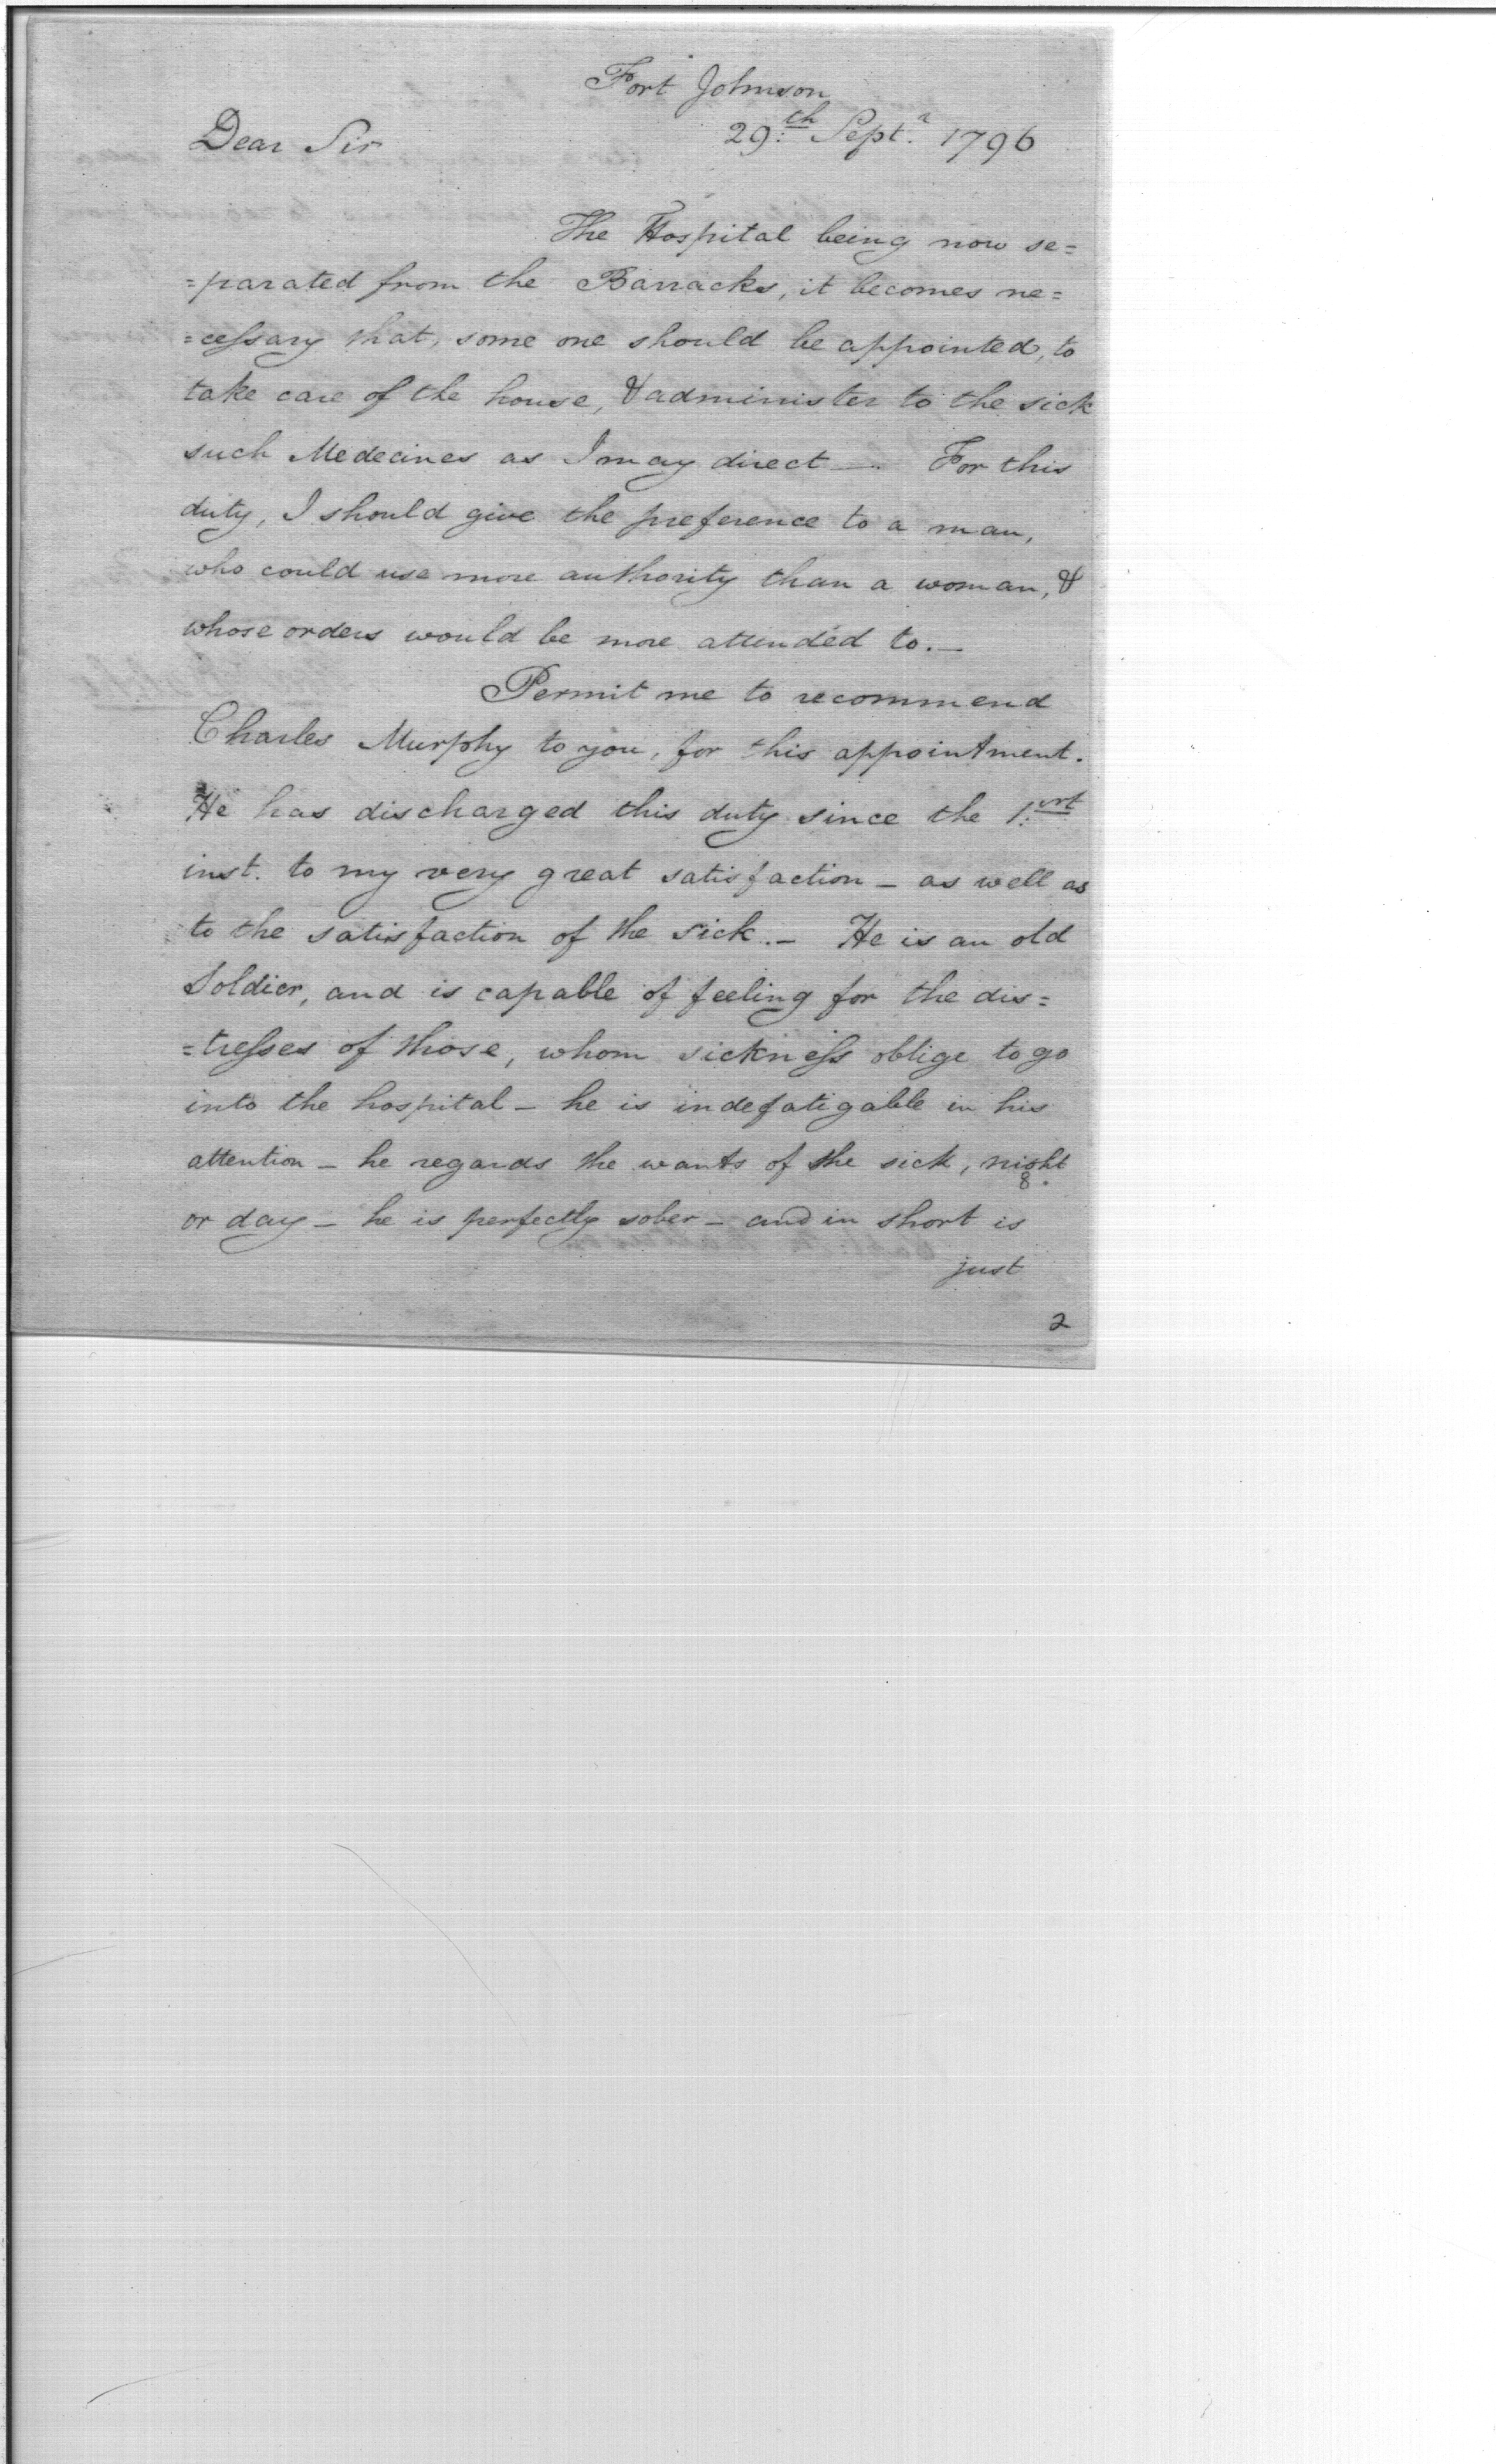 Fort Johnson
Dear Sir 29.th Sept.r 1796
The Hospital being now se=
=parated from the Barracks, it becomes ne=
=cessary that, some one should be appointed, to
take care of the house, & administer to the sick
such Medecines as I may direct —. For this
duty, I should give the preference to a man,
who could use more authority than a woman, &
whose orders would be more attended to. —
Permit me to recommend
Charles Murphy to you, for this appointment.
He has discharged this duty since the 1.rst
inst. to my very great satisfaction — as well as
to the satisfaction of the sick. — He is an old
Soldier, and is capable of feeling for the dis=
=tresses of those, whom sickness oblige to go
into the hospital — he is indefatigable in his
attention — he regards the wants of the sick, night
or day — he is perfectly sober — and in short is
just
2